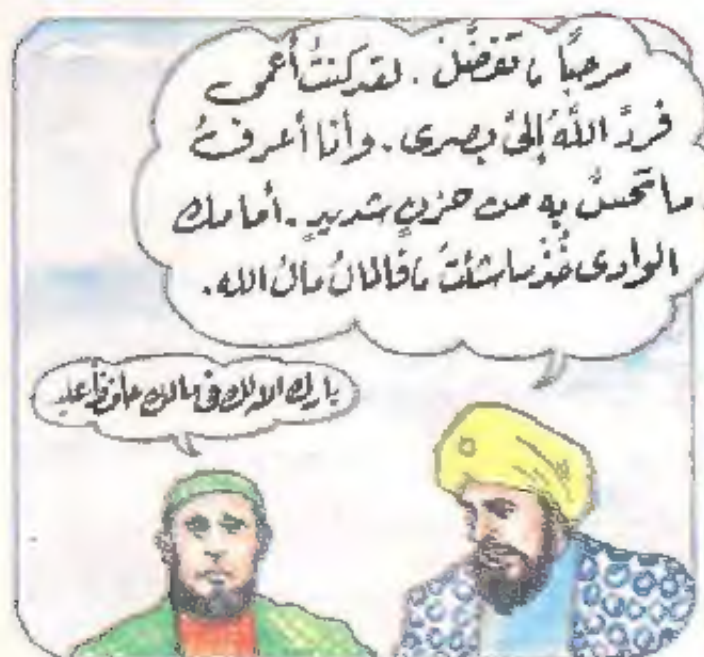 مرحبًا ، تفضَّلْ . لقد كنتُ أعمى
فردَّ اللهُ إليَّ بصرى . وأنا أعرفُ
ما تحسُّ به من حزنٍ شديدٍ . أمامك
الوادى خُذْ ما شئتَ ، فالمالُ مالُ الله .
بارك الله لك فى مالك